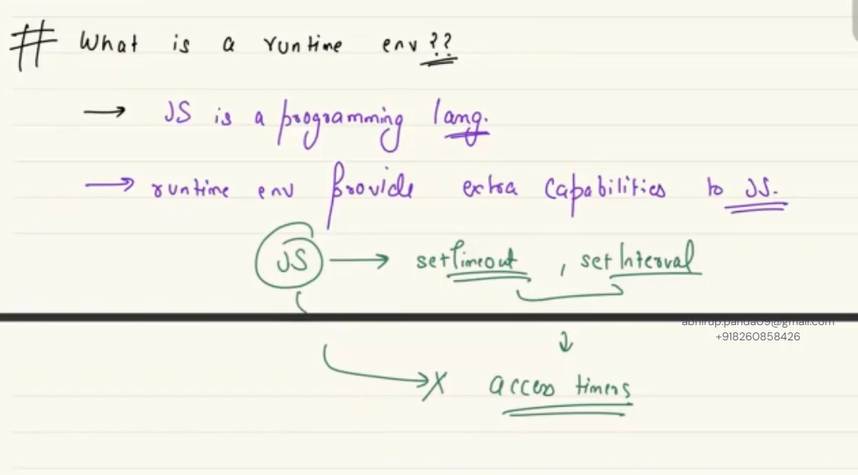 # What is a runtime env ??
→ JS is a programming lang.
→ runtime env provide extra capabilities to JS.
JS → setTimeout , setInterval
abhirup.panda09@gmail.com
+918260858426
↓
→ X access timers